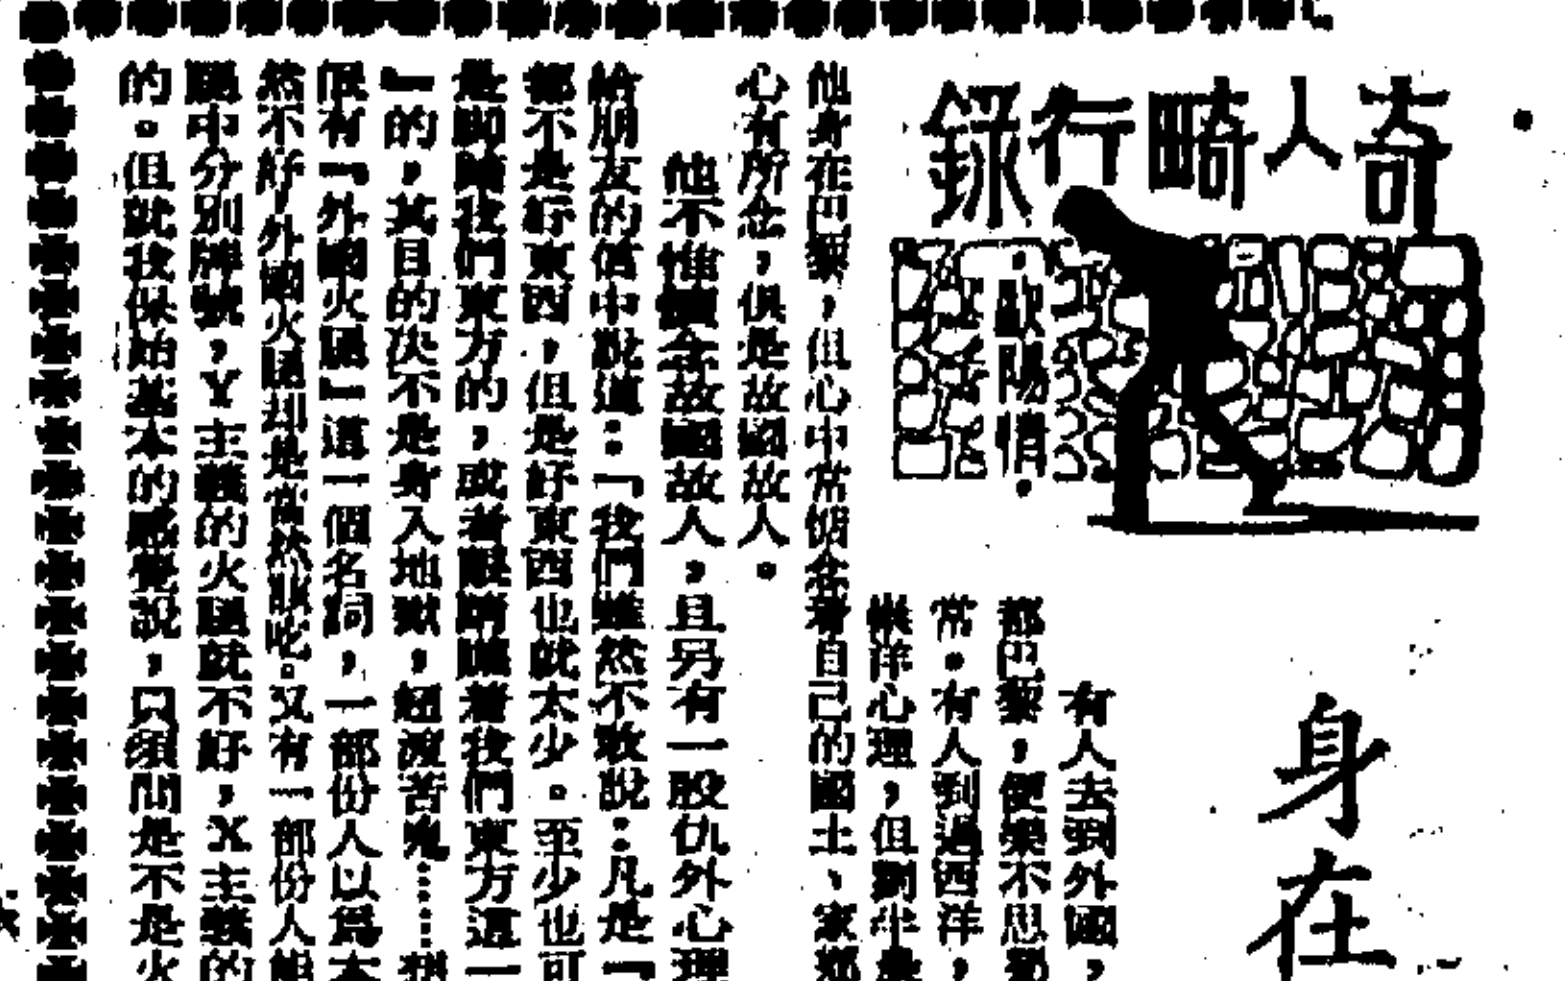 奇人畸行錄
·歐陽情·
身在
有人去到外國，
都巴黎，便樂不思蜀
常。有人到過西洋，
心理，但劉半農
他身在巴黎，但心中常惦念着自己的國土、家鄉
心有所念，俱是故國故人。
他不惟懷念故國故人，且另有一股仇外心理
給朋友的信中說道：「我們雖然不敢說：凡是『
都不是好東西，但是好東西也就太少。至少也可
是脚踏我們東方的，或者眼睛瞧着我們東方這一
』的，其目的决不是身入地獄，超渡苦鬼……
恨有『外國火腿』這一個名詞，一部份人以爲本
然不好，外國火腿却是當然該吃。又有一部份人
腿中分別牌號，Y主義的火腿就不好，X主義的
的。但就我保始基本的感覺說，只須問是不是火